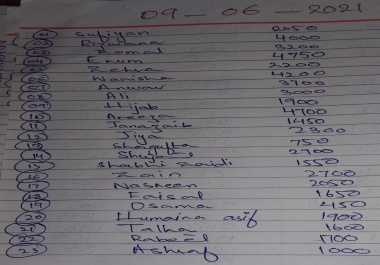 09-06-2021
01 Sufiyan 2050
02 Rizwana 4000
03 Komal 3200
04 Enum 4750
05 Zehra 2200
06 Warisha 4200
07 Anwar 3700
08 Ali 3000
09 Hijab 1900
10 Areeza 4700
11 Janazaib 1450
12 Jiya 2300
13 Shagufta 750
14 2700
15 Shabihi Zaidi 1550
16 Zain 2700
17 Nasreen 2050
18 Faisal 1650
19 Osama 450
20 Humaina asif 1900
21 Talha 1600
22 Rabeel 1700
23 Ashraf 1000